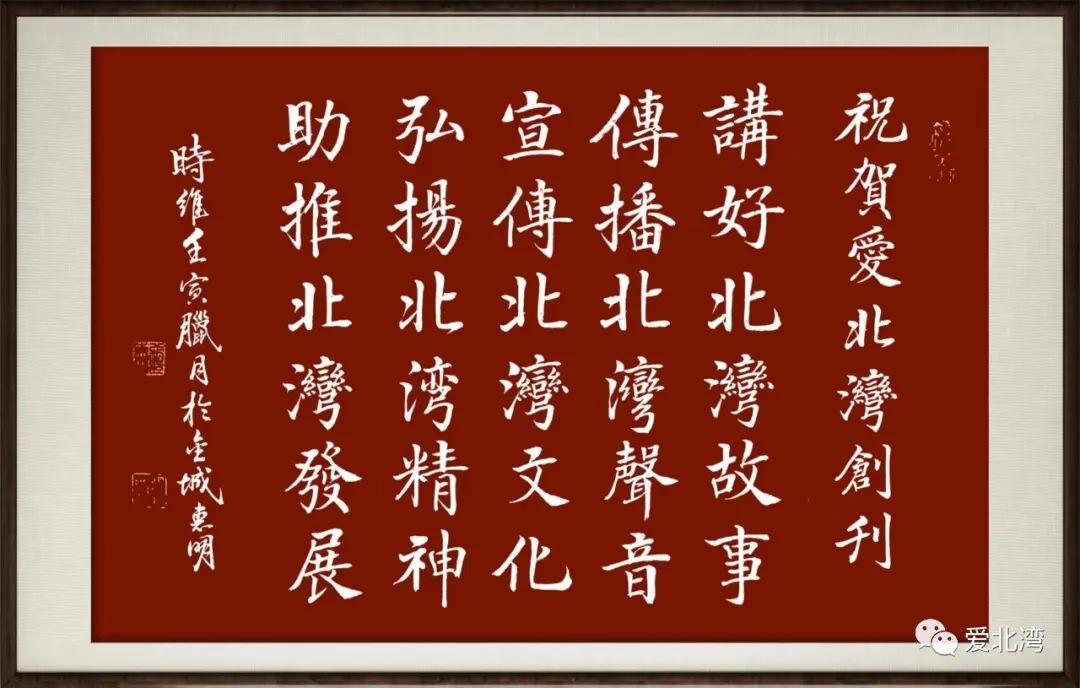 祝賀愛北灣創刊
講好北灣故事
傳播北灣聲音
宣傳北灣文化
弘揚北湾精神
助推北灣發展
時維壬寅臘月於金城惠明
爱北湾